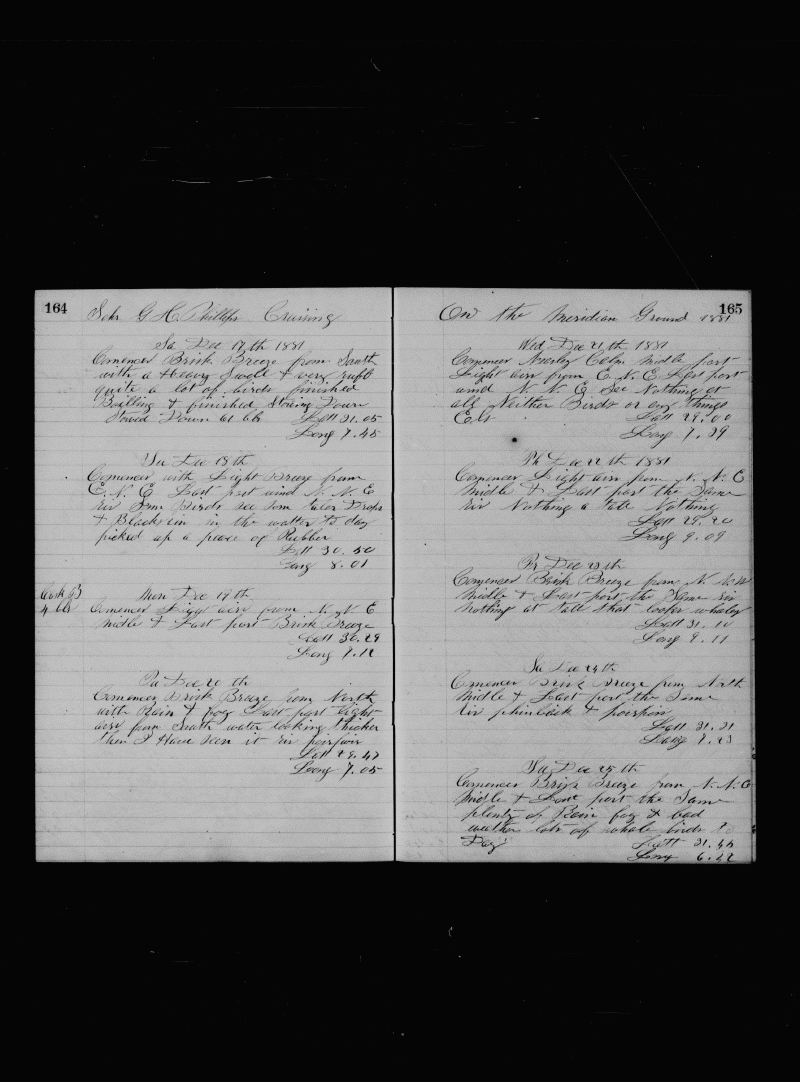 164
Schr G H Phillips Cruising
Sa Dec 17th 1881
Comences Brisk Breeze from South
with a Heavy Swell & very ruff
quite a lot of birds finished
Boilling & finished Stowing Down
Stowed Down 61 bb Latt 31.05
Long 7.45
Su Dec 18th
Comences with Light Breeze from
E. N. E Last part wind N. N. E
Sir Som Birds see som
& Blackskin in the watter to day
picked up a peace of Rubber
Latt 30.50
Long 8.01
Cask 63
4 bb
Mon Dec 19th
Comences Light airs from N. N. E
Midle & Last part Brisk Breeze
Latt 30.29
Long 7.12
Tu Dec 20th
Comences Brisk Breeze from North
with Rain & Fog Last part Light
airs from South water looking thicker
then I Have seen it
Latt 29.47
Long 7.05
165
On the Meridian Ground 1881
Wed Dec 21th 1881
Comences Nearly Calm Midle part
Light airs from E. N. E Last part
wind N. N. E See Nothing at
all Neither Birds or any things
Els Latt 29.00
Long 7.39
Th Dec 22th 1881
Comences Light airs from N. N. E
Midle & Last part the Same
Nothing a tall Nothing
Latt 29.20
Long 9.09
Fr Dec 23th
Comences Brisk Breeze from N. N. W
Midle & Last part the Same
Nothing at tall that looks whaley
Latt 31.10
Long 9.11
Sa Dec 24th
Comences Brisk Breeze from North
Midle & Last part the Same
finback &
Latt 31.21
Long 7.23
Su Dec 25th
Comences Brisk Breeze from N. N. E
Midle & Last part the Same
plenty of Rain fog & bad
weather lots of whale birds to
Day Latt 31.44
Long 6.42